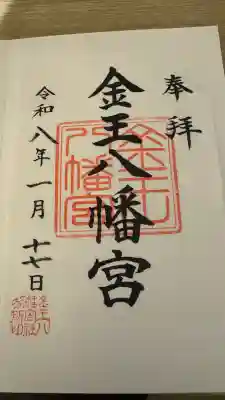 奉拝
金王八幡宮
令和八年一月十七日
金王八幡宮